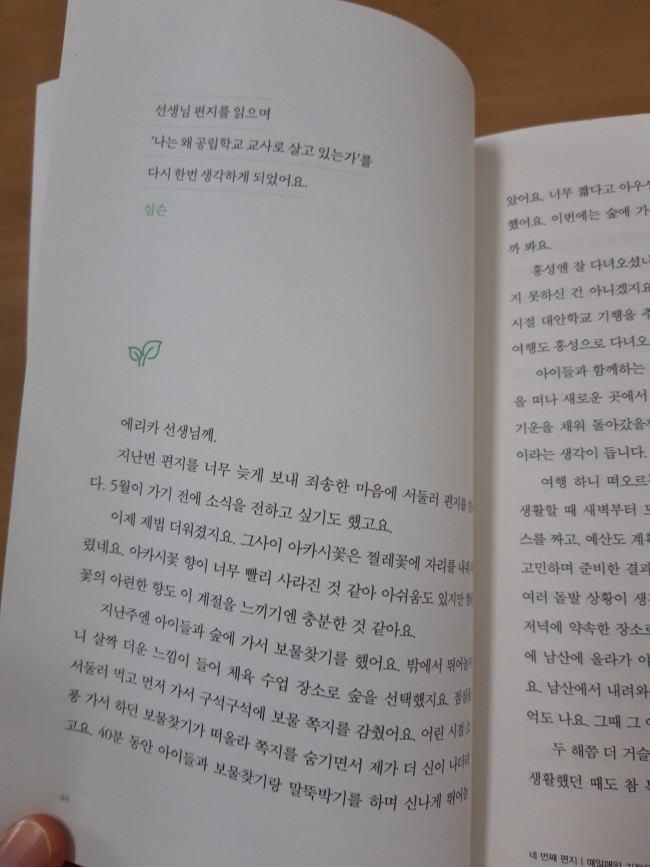 선생님 편지를 읽으며
'나는 왜 공립학교 교사로 살고 있는가'를
다시 한번 생각하게 되었어요.
심슨
에리카 선생님께.
지난번 편지를 너무 늦게 보내 죄송한 마음에 서둘러 편지를
다. 5월이 가기 전에 소식을 전하고 싶기도 했고요.
이제 제법 더워졌지요. 그사이 아카시꽃은 찔레꽃에 자리를
렸네요. 아카시꽃 향이 너무 빨리 사라진 것 같아 아쉬움도 있지만
꽃의 아련한 향도 이 계절을 느끼기엔 충분한 것 같아요.
지난주엔 아이들과 숲에 가서 보물찾기를 했어요. 밖에서
니 살짝 더운 느낌이 들어 체육 수업 장소로 숲을 선택했지요.
서둘러 먹고 먼저 가서 구석구석에 보물 쪽지를 감췄어요. 어린 시절 소
풍 가서 하던 보물찾기가 떠올라 쪽지를 숨기면서 제가 더 신이
고요. 40분 동안 아이들과 보물찾기랑 말뚝박기를 하며 신나게
48
았어요. 너무 짧다고
했어요. 이번에는 숲에
까 봐요.
홍성엔 잘 다녀오셨나
지 못하신 건 아니겠지요
시절 대안학교 기행을
여행도 홍성으로 다녀오
아이들과 함께하는
을 떠나 새로운 곳에서
기운을 채워 돌아갔을
이라는 생각이 듭니다.
여행 하니 떠오르
생활할 때 새벽부터
스를 짜고, 예산도
고민하며 준비한 결과
여러 돌발 상황이
저녁에 약속한 장소로
에 남산에 올라가
요. 남산에서 내려와
억도 나요. 그때 그
두 해쯤 더 거슬
생활했던 때도 참
네 번째 편지 | 매일매일